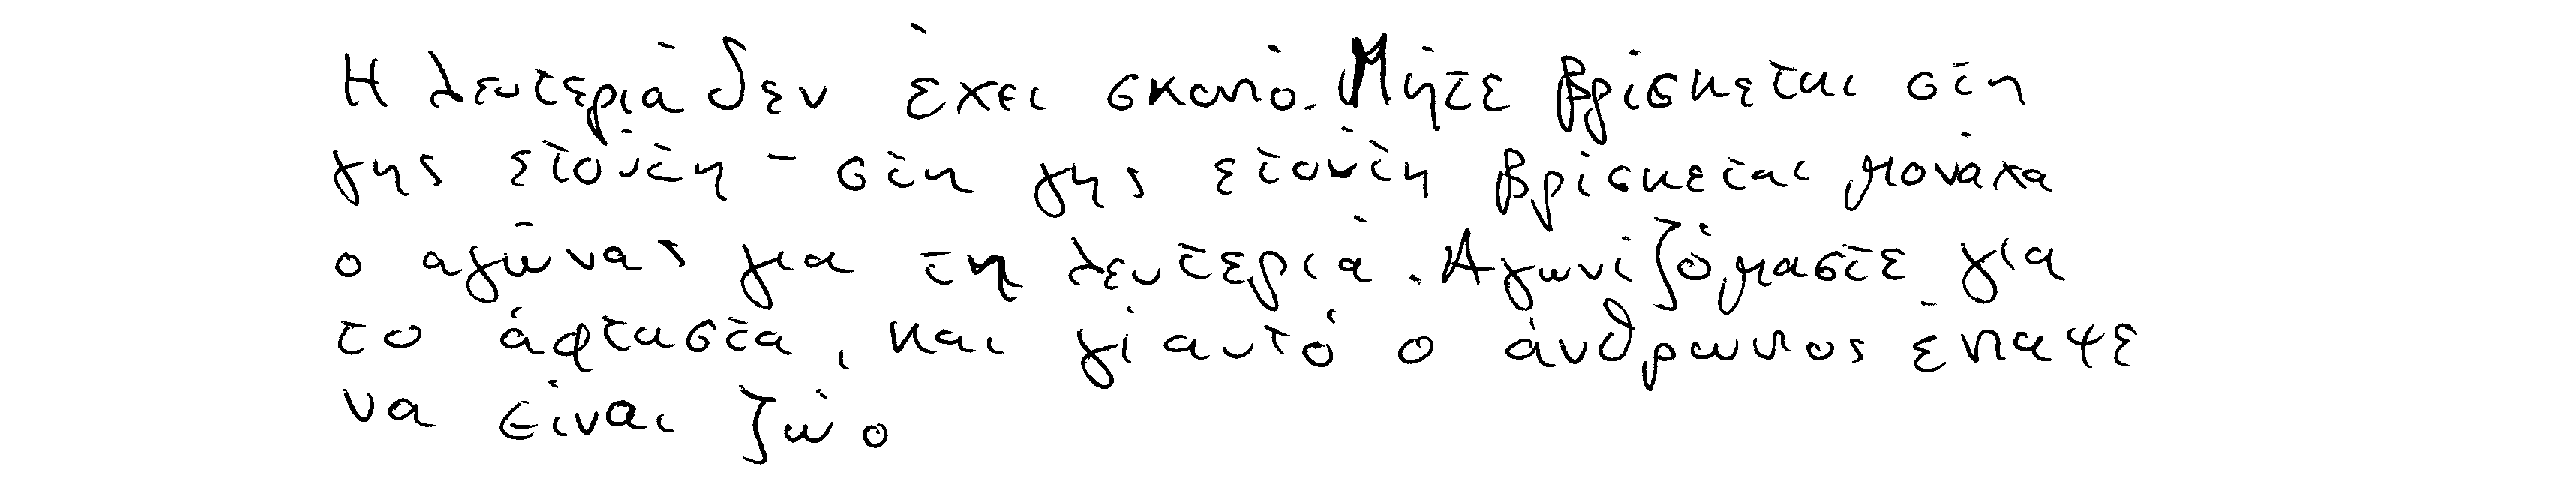 Η λευτεριά δεν έχει σκοπό. Μήτε βρίσκεται στη
γης ετούτη - στη γης ετούτη βρίσκεται μονάχα
ο αγώνας για τη λευτεριά. Αγωνιζόμαστε για
το άφταστα, και γι αυτό ο άνθρωπος έπαψε
να είναι ζώο